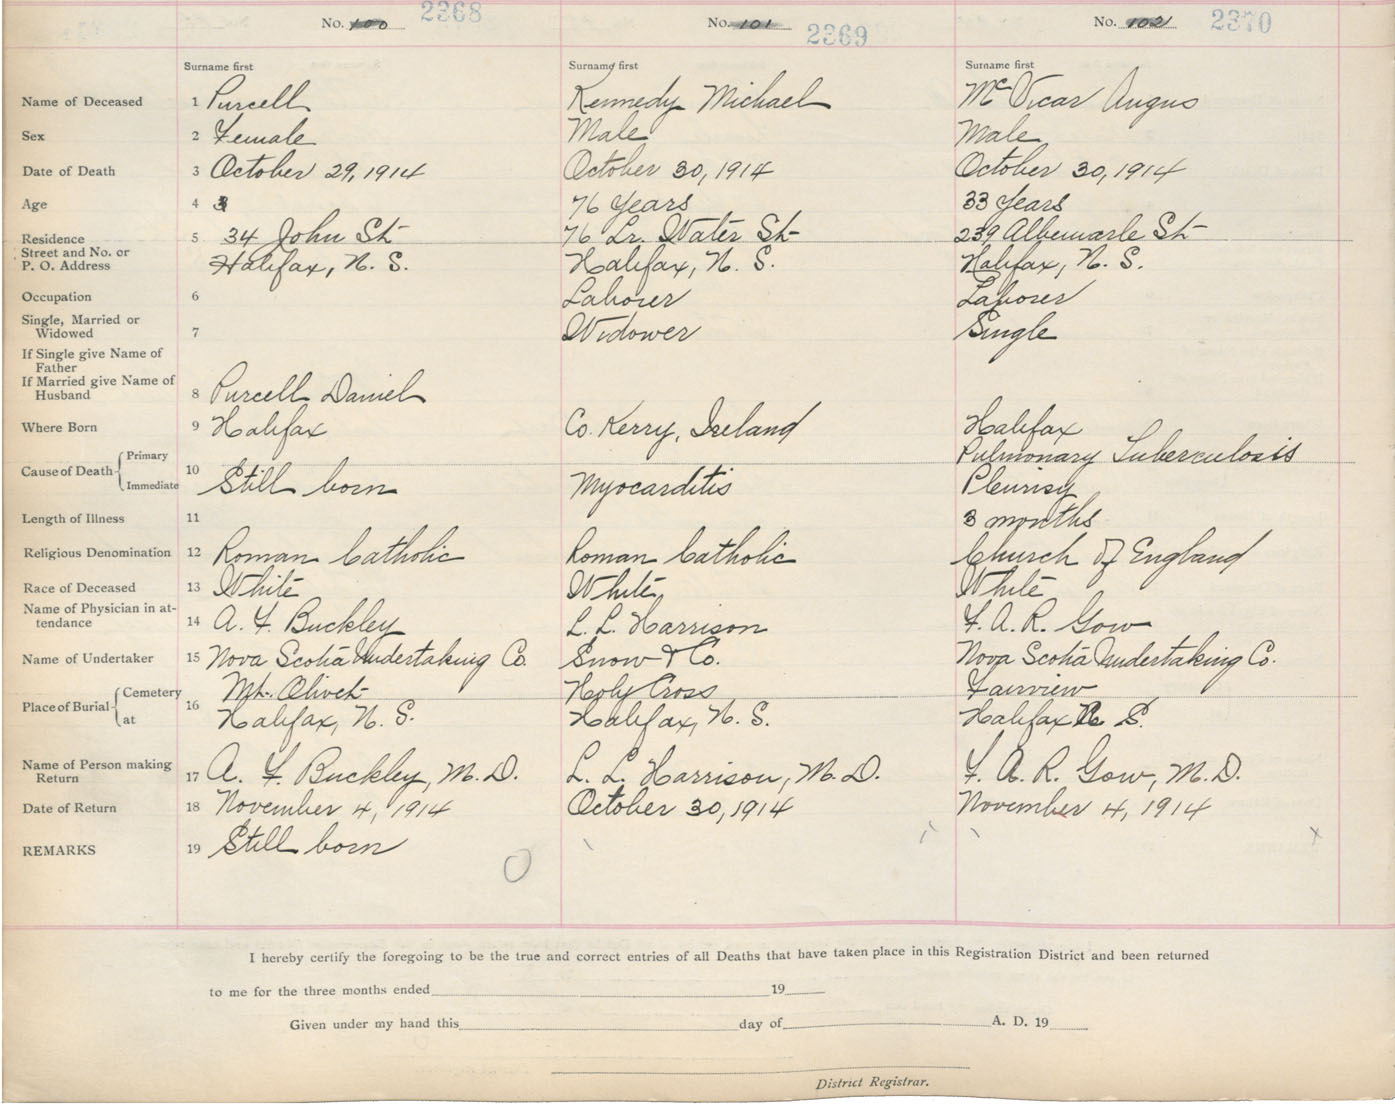 No. 100 2368 No. 101 2369 No. 102 2370
Surname first Surname first Surname first
Name of Deceased 1 Purcell Kennedy Michael McVicar Angus
Sex 2 Female Male Male
Date of Death 3 October 29, 1914 October 30, 1914 October 30, 1914
Age 4 76 Years 33 Years
Residence 5 34 John St 76 Lr. Water St 239 Albemarle St
Street and No. or
P. O. Address Halifax, N. S. Halifax, N. S. Halifax, N. S.
Occupation 6 Laborer Laborer
Single, Married or
Widowed 7 Widower Single
If Single give Name of
Father
If Married give Name of
Husband 8 Purcell Daniel
Where Born 9 Halifax Co. Kerry, Ireland Halifax
Primary Pulmonary Tuberculosis
Cause of Death 10
Immediate Still born Myocarditis Pleurisy
Length of Illness 11 3 months
Religious Denomination 12 Roman Catholic Roman Catholic Church of England
Race of Deceased 13 White White White
Name of Physician in at-
tendance 14 A. F. Buckley L. L. Harrison F. A. R. Gow
Name of Undertaker 15 Nova Scotia Undertaking Co. Snow & Co. Nova Scotia Undertaking Co.
Cemetery Mt. Olivet Holy Cross Fairview
Place of Burial 16
at Halifax, N. S. Halifax, N. S. Halifax N. S.
Name of Person making
Return 17 A. F. Buckley, M. D. L. L. Harrison, M. D. F. A. R. Gow, M. D.
Date of Return 18 November 4, 1914 October 30, 1914 November 4, 1914
REMARKS 19 Still born
I hereby certify the foregoing to be the true and correct entries of all Deaths that have taken place in this Registration District and been returned
to me for the three months ended 19
Given under my hand this day of A. D. 19
District Registrar.